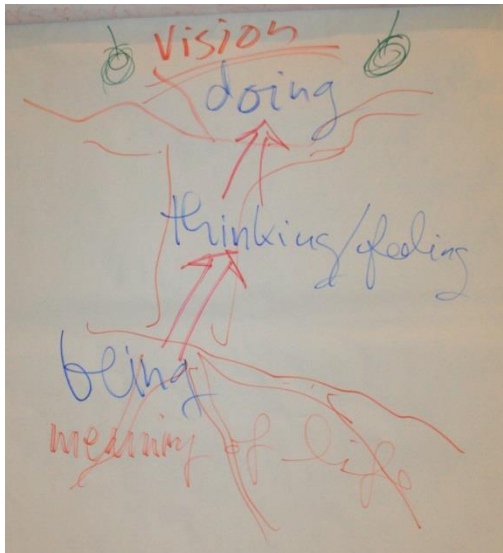 vision
doing
thinking/feeling
being
meaning of life